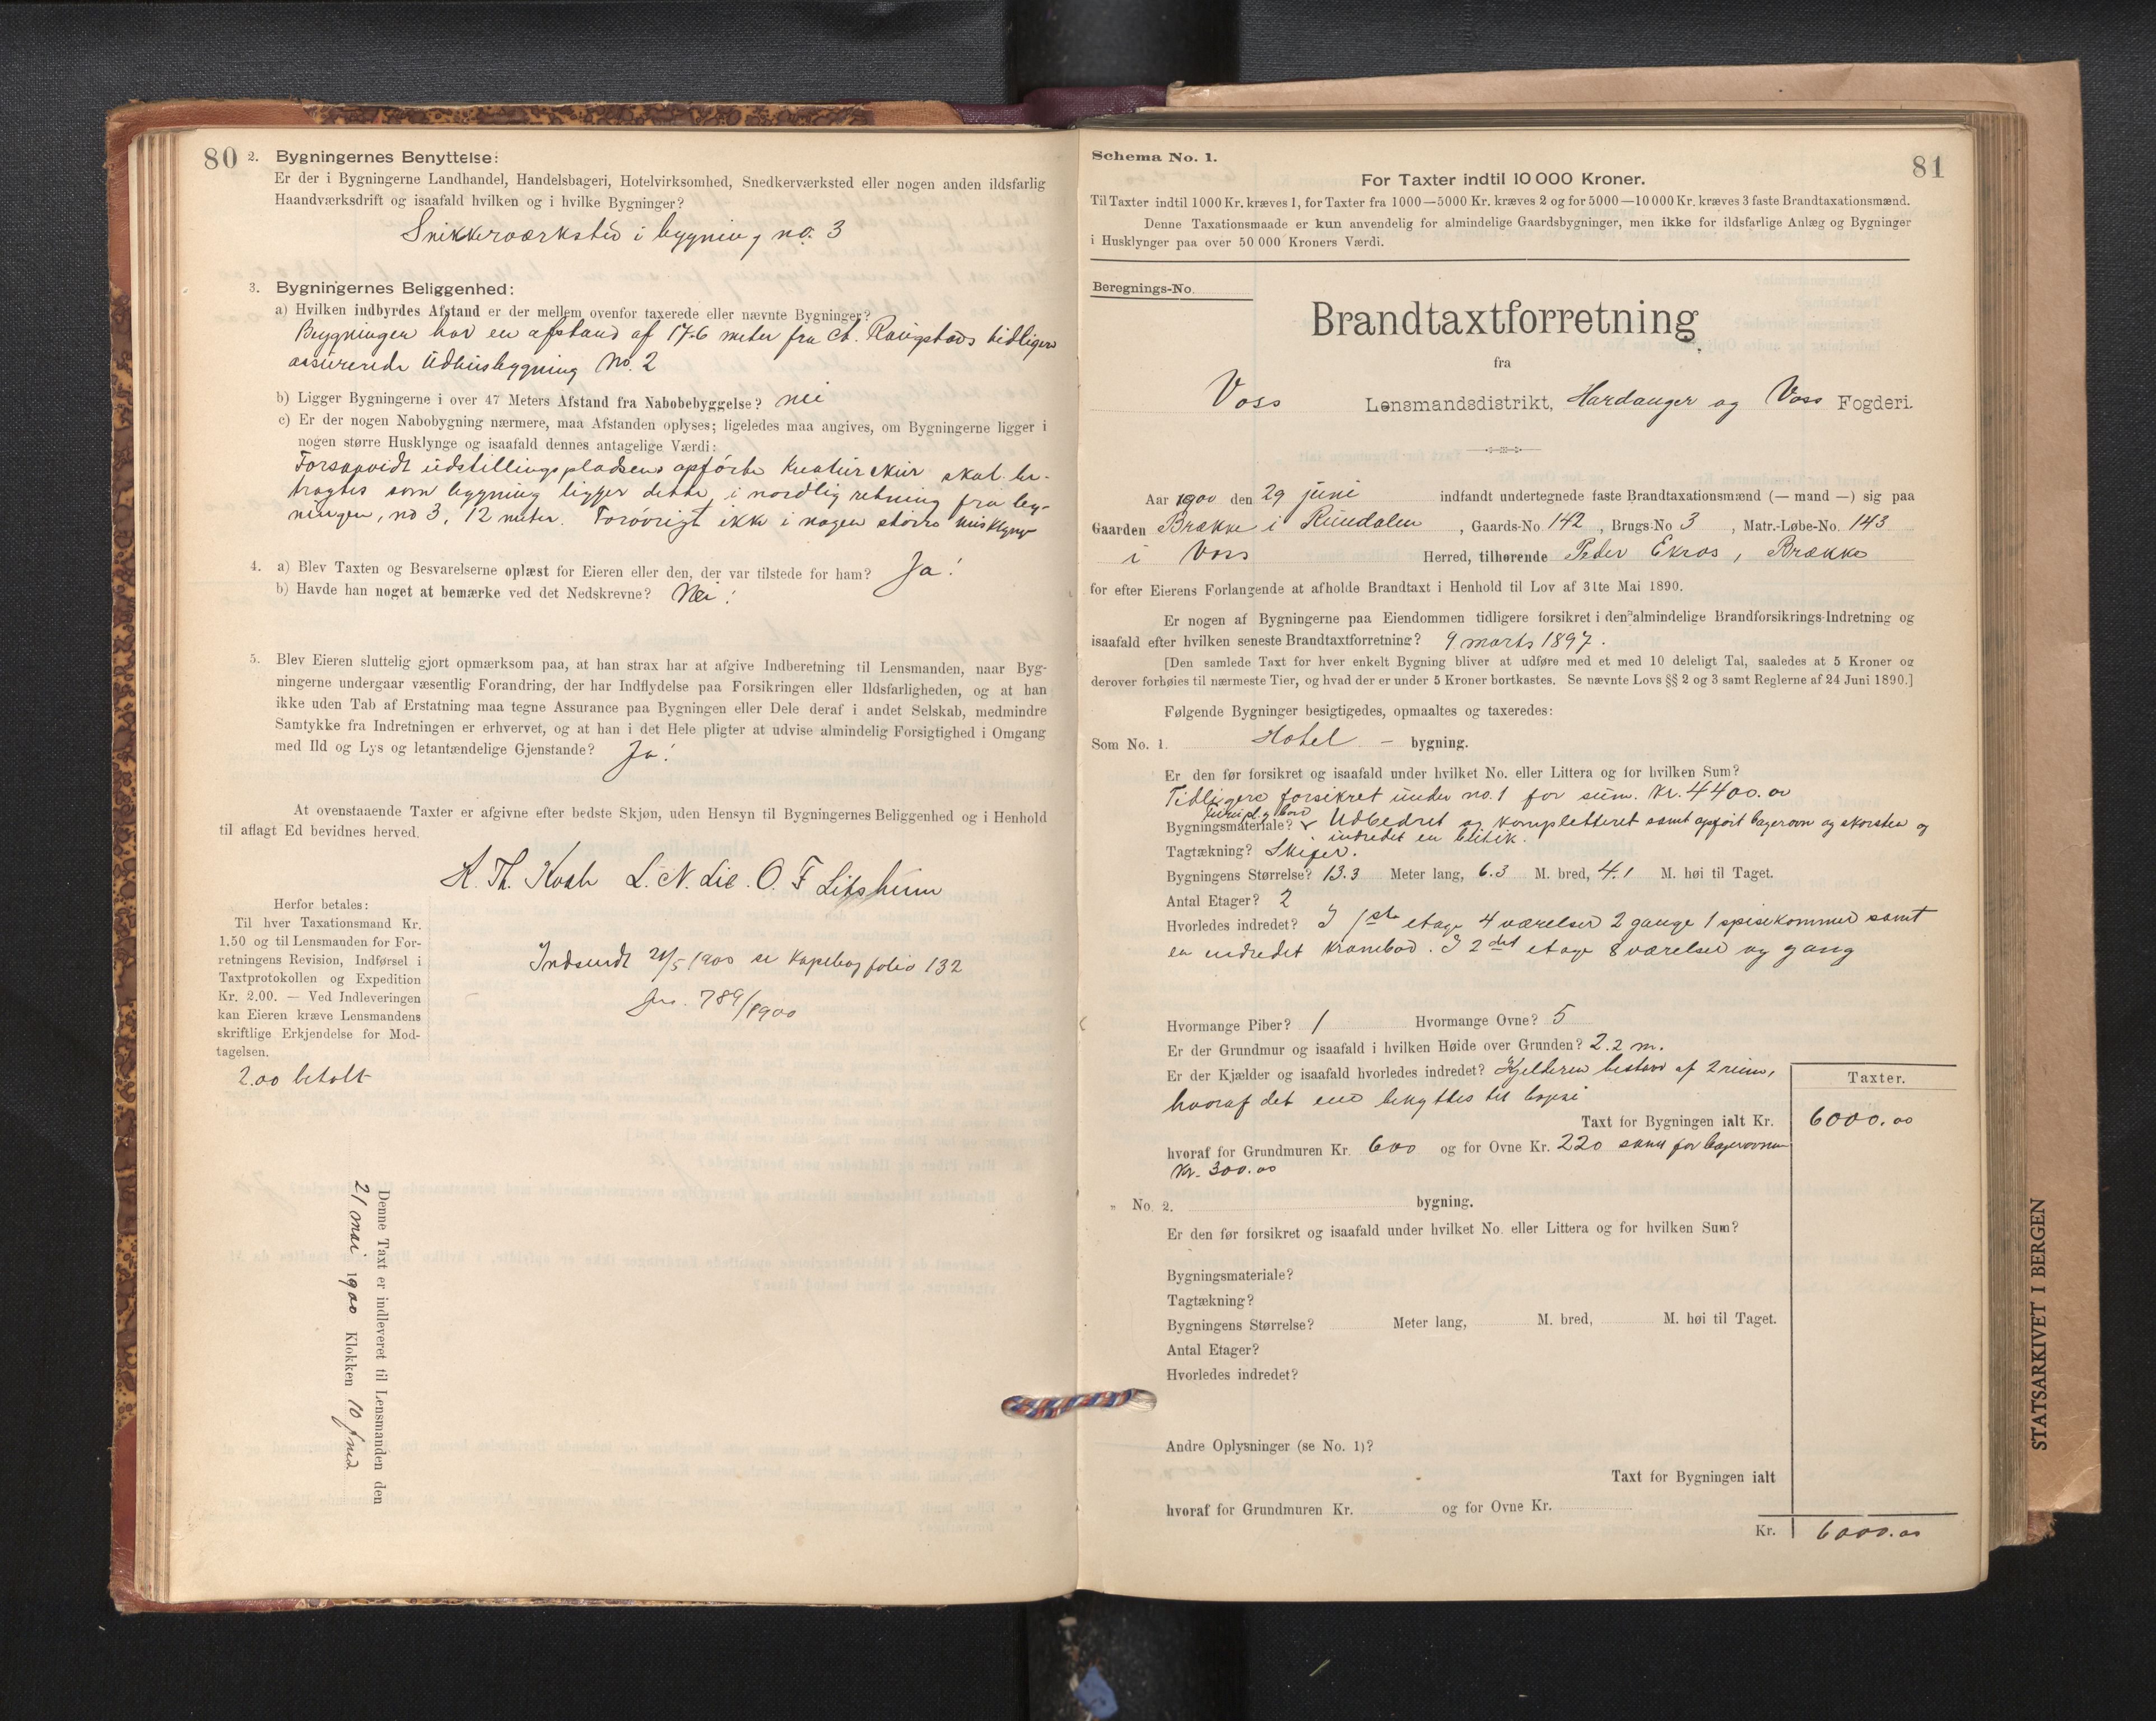 80
2. Bygningernes Benyttelse:
Er der i Bygningerne Landhandel, Handelsbageri, Hotelvirksomhed, Snedkerværksted eller nogen anden ildsfarlig
Haandværksdrift og isaafald hvilken og i hvilke Bygninger?
Snikkerværksted i bygning no. 3
3. Bygningernes Beliggenhed:
a) Hvilken indbyrdes Afstand er der mellem ovenfor taxerede eller nævnte Bygninger?
Bygningen har en afstand af 17.6 meter fra A. Ringstads tidligere
assurerede Udhusbygning No. 2
b) Ligger Bygningerne i over 47 Meters Afstand fra Nabobebyggelse? nei
c) Er der nogen Nabobygning nærmere, maa Afstanden oplyses; ligeledes maa angives, om Bygningerne ligger i
nogen større Husklynge og isaafald dennes antagelige Værdi:
Forsaavidt udstillingspladsens opførte Kreaturskur skal be-
tragtes som bygning ligger dette, i nordlig retning fra byg-
ningen, no 3, 12 meter. Forøvrigt ikke i nogen større husklynge
4. a) Blev Taxten og Besvarelserne oplæst for Eieren eller den, der var tilstede for ham? Ja!
b) Havde han noget at bemærke ved det Nedskrevne? Nei!
5. Blev Eieren sluttelig gjort opmærksom paa, at han strax har at afgive Indberetning til Lensmanden, naar Byg-
ningerne undergaar væsentlig Forandring, der har Indflydelse paa Forsikringen eller Ildsfarligheden, og at han
ikke uden Tab af Erstatning maa tegne Assurance paa Bygningen eller Dele deraf i andet Selskab, medmindre
Samtykke fra Indretningen er erhvervet, og at han i det Hele pligter at udvise almindelig Forsigtighed i Omgang
med Ild og Lys og letantændelige Gjenstande? Ja!
At ovenstaaende Taxter er afgivne efter bedste Skjøn, uden Hensyn til Bygningernes Beliggenhed og i Henhold
til aflagt Ed bevidnes herved.
K. Th. L. N. Lie. O. F
Herfor betales:
Til hver Taxationsmand Kr.
1.50 og til Lensmanden for For-
retningens Revision, Indførsel i
Taxtprotokollen og Expedition
Kr. 2.00. — Ved Indleveringen
kan Eieren kræve Lensmandens
skriftlige Erkjendelse for Mod-
tagelsen.
2.00 betalt
Indsendt 21/5 1900 se Kopibog folio 132
Jno. 789/1900
Denne Taxt er indleveret til Lensmanden den
21 mai 1900 Klokken 10 fmd
81
Schema No. 1.
For Taxter indtil 10 000 Kroner.
Til Taxter indtil 1000 Kr. kræves 1, for Taxter fra 1000—5000 Kr. kræves 2 og for 5000—10 000 Kr. kræves 3 faste Brandtaxationsmænd.
Denne Taxationsmaade er kun anvendelig for almindelige Gaardsbygninger, men ikke for ildsfarlige Anlæg og Bygninger
i Husklynger paa over 50 000 Kroners Værdi.
Beregnings-No.
Brandtaxtforretning
fra
Voss Lensmandsdistrikt, Hardanger og Voss Fogderi.
Aar 1900 den 29 juni indfandt undertegnede faste Brandtaxationsmænd (— mand —) sig paa
Gaarden Brække i Rundalen, Gaards-No 142, Brugs-No 3, Matr.-Løbe-No. 143
i Voss Herred, tilhørende Peder Ekros, Brække
for efter Eierens Forlangende at afholde Brandtaxt i Henhold til Lov af 31te Mai 1890.
Er nogen af Bygningerne paa Eiendommen tidligere forsikret i den almindelige Brandforsikrings-Indretning og
isaafald efter hvilken seneste Brandtaxtforretning? 9 marts 1897.
[Den samlede Taxt for hver enkelt Bygning bliver at udføre med et med 10 deleligt Tal, saaledes at 5 Kroner og
derover forhøies til nærmeste Tier, og hvad der er under 5 Kroner bortkastes. Se nævnte Lovs §§ 2 og 3 samt Reglerne af 24 Juni 1890.]
Følgende Bygninger besigtigedes, opmaaltes og taxeredes:
Som No. 1. Hotel — bygning.
Er den før forsikret og isaafald under hvilket No. eller Littera og for hvilken Sum?
Tidligere forsikret under no. 1 for sum. Kr. 4400.00
Bygningsmateriale? Udbedret og kompletteret samt opført bagerovn og skorsten og
indredet en butik.
Tagtækning? Skifer.
Bygningens Størrelse? 13.3 Meter lang, 6.3 M. bred, 4.1 M. høi til Taget.
Antal Etager? 2
Hvorledes indredet? I 1ste etage 4 værelser 2 gange 1 spisekammer samt
en indredet krambod. I 2det etage 8 værelser og gang
Hvormange Piber? 1 Hvormange Ovne? 5
Er der Grundmur og isaafald i hvilken Høide over Grunden? 2.2 m.
Er der Kjælder og isaafald hvorledes indredet? Kjelderen bestaar af 2 rum,
hvoraf det ene benyttes til bageri
Taxter.
Taxt for Bygningen ialt Kr. 6000.00
hvoraf for Grundmuren Kr. 600 og for Ovne Kr. 220 samt for bagerovnen
Kr. 300.00
„ No. 2. bygning.
Er den før forsikret og isaafald under hvilket No. eller Littera og for hvilken Sum?
Bygningsmateriale?
Tagtækning?
Bygningens Størrelse? Meter lang, M. bred, M. høi til Taget.
Antal Etager?
Hvorledes indredet?
Andre Oplysninger (se No. 1)?
Taxt for Bygningen ialt
hvoraf for Grundmuren Kr. og for Ovne Kr.
Kr. 6000.00
STATSARKIVET I BERGEN